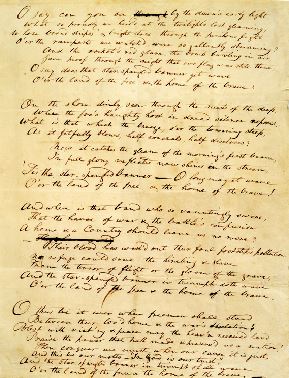 O say can you see by the dawn's early light
What so proudly we hail'd at the twilight's last gleaming,
Whose broad stripes & bright stars through the perilous fight
O'er the ramparts we watch'd, were so gallantly streaming?
And the rocket's red glare, the bomb bursting in air,
Gave proof through the night that our flag was still there,
O say does that star-spangled banner yet wave
O'er the land of the free & the home of the brave?
On the shore dimly seen through the mists of the deep,
Where the foe's haughty host in dread silence reposes,
What is that which the breeze, o'er the towering steep,
As it fitfully blows, half conceals, half discloses?
Now it catches the gleam of the morning's first beam,
In full glory reflected now shines in the stream,
'Tis the star-spangled banner - O long may it wave
O'er the land of the free & the home of the brave!
And where is that band who so vauntingly swore,
That the havoc of war & the battle's confusion
A home & a Country should leave us no more?
Their blood has wash'd out their foul footsteps pollution.
No refuge could save the hireling & slave
From the terror of flight or the gloom of the grave,
And the star-spangled banner in triumph doth wave
O'er the land of the free & the home of the brave.
O thus be it ever when freemen shall stand
Between their lov'd home & the war's desolation!
Blest with vict'ry & peace may the heav'n rescued land
Praise the power that hath made & preserv'd us a nation!
Then conquer we must, when our cause it is just,
And this be our motto - "In God is our trust,"
And the star-spangled banner in triumph shall wave
O'er the land of the free & the home of the brave.